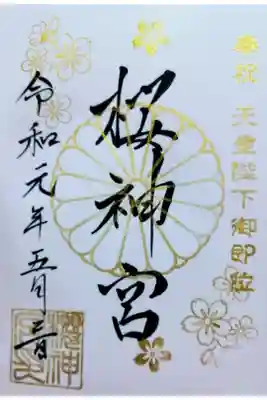 奉祝 天皇陛下御即位
桜神宮
令和元年五月一日